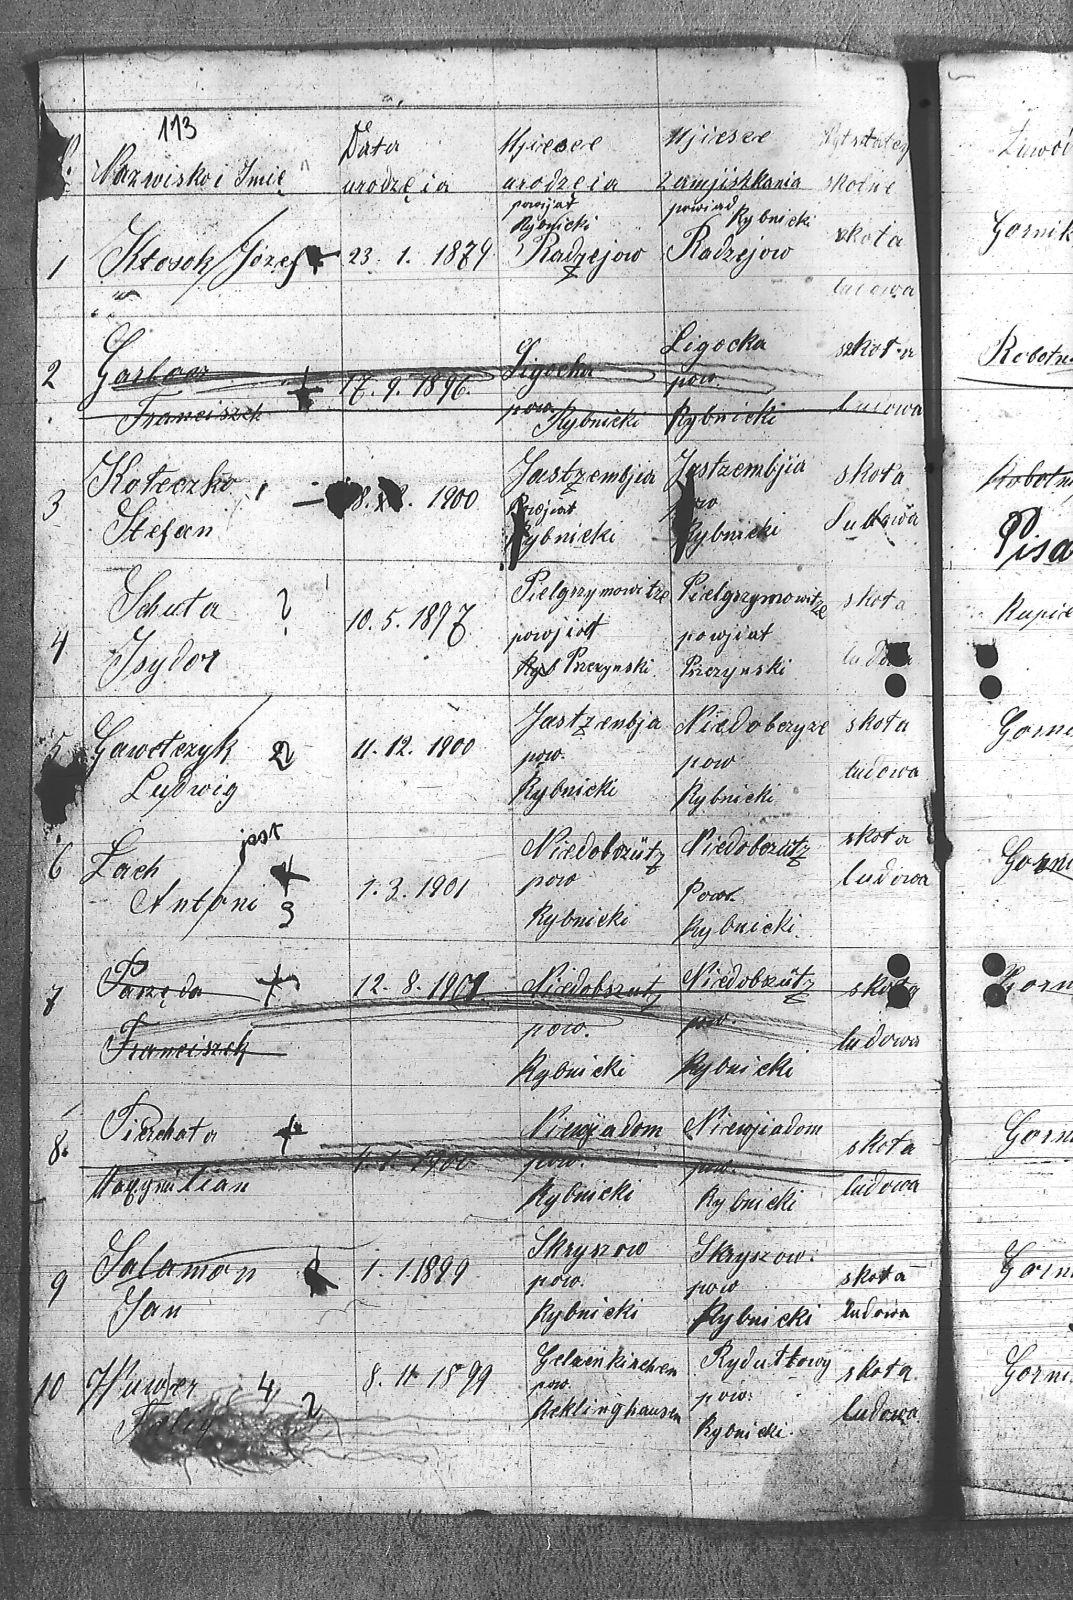 113
Nazwisko i Imię
Data
urodzęia
Mjiesce
urodzęia
Mjiesce
Zamjiszkania
skolne
1
Kłosok Józef
23. 1. 1879
powijat
Rybnicki
Radzejow
powiad Rybnicki
Radzejow
skoła
ludowa
Gornik
2
Franciszek
17. 9. 1896.
Ligocka
pow.
Rybnicki
Ligocka
pow.
Rybnicki
szkoła
ludowa
Robotn
3
Koteczko
Stefan
1900
Jastzembjia
Powjiat
Rybnicki
Jastzembjia
pow
Rybnicki
skoła
ludowa
Robotn
Pisa
4
Schuta ?
Isydor
10. 5. 1897
Pielgrzymowitze
powjiatt
Przezynski
Pielgrzymowitze
powjiat
Przezynski
skoła
ludowa
Kupie
5
Gawełczyk 2
Ludwig
11. 12. 1900
Jastzembja
pow.
Rybnicki
Niedobczyze
pow
Rybnicki
skoła
ludowa
Gorni
6
jest
Lach
Antoni
1. 3. 1901
Niedobszütz
pow
Rybnicki
Niedobczütz
Pow.
Rybnicki.
skoła
ludowa
Gorni
7
Parzęda
Franciszek
12. 8. 1901
Niedobszutz
pow.
Rybnicki
Niedobszütz
pow.
Rybnicki
skoła
ludowa
Gorn
8.
Pierchała
Maxymilian
1900
Niewjiadom
pow.
Rybnicki
Niewjiadom
pow.
Rybnicki
skoła
ludowa
Gorni
9
Salamon
Jan
1. 1. 1899
Skryszow
pow.
Rybnicki
Skryszow.
pow
Rybnicki
skoła
ludowa
Gorni
10
4, 2
8. 11 1899
Gelzenkirchen
pow.
Reklinghausen
Rydułtowy
pow.
Rybnicki.
skoła
ludowa
Gorni